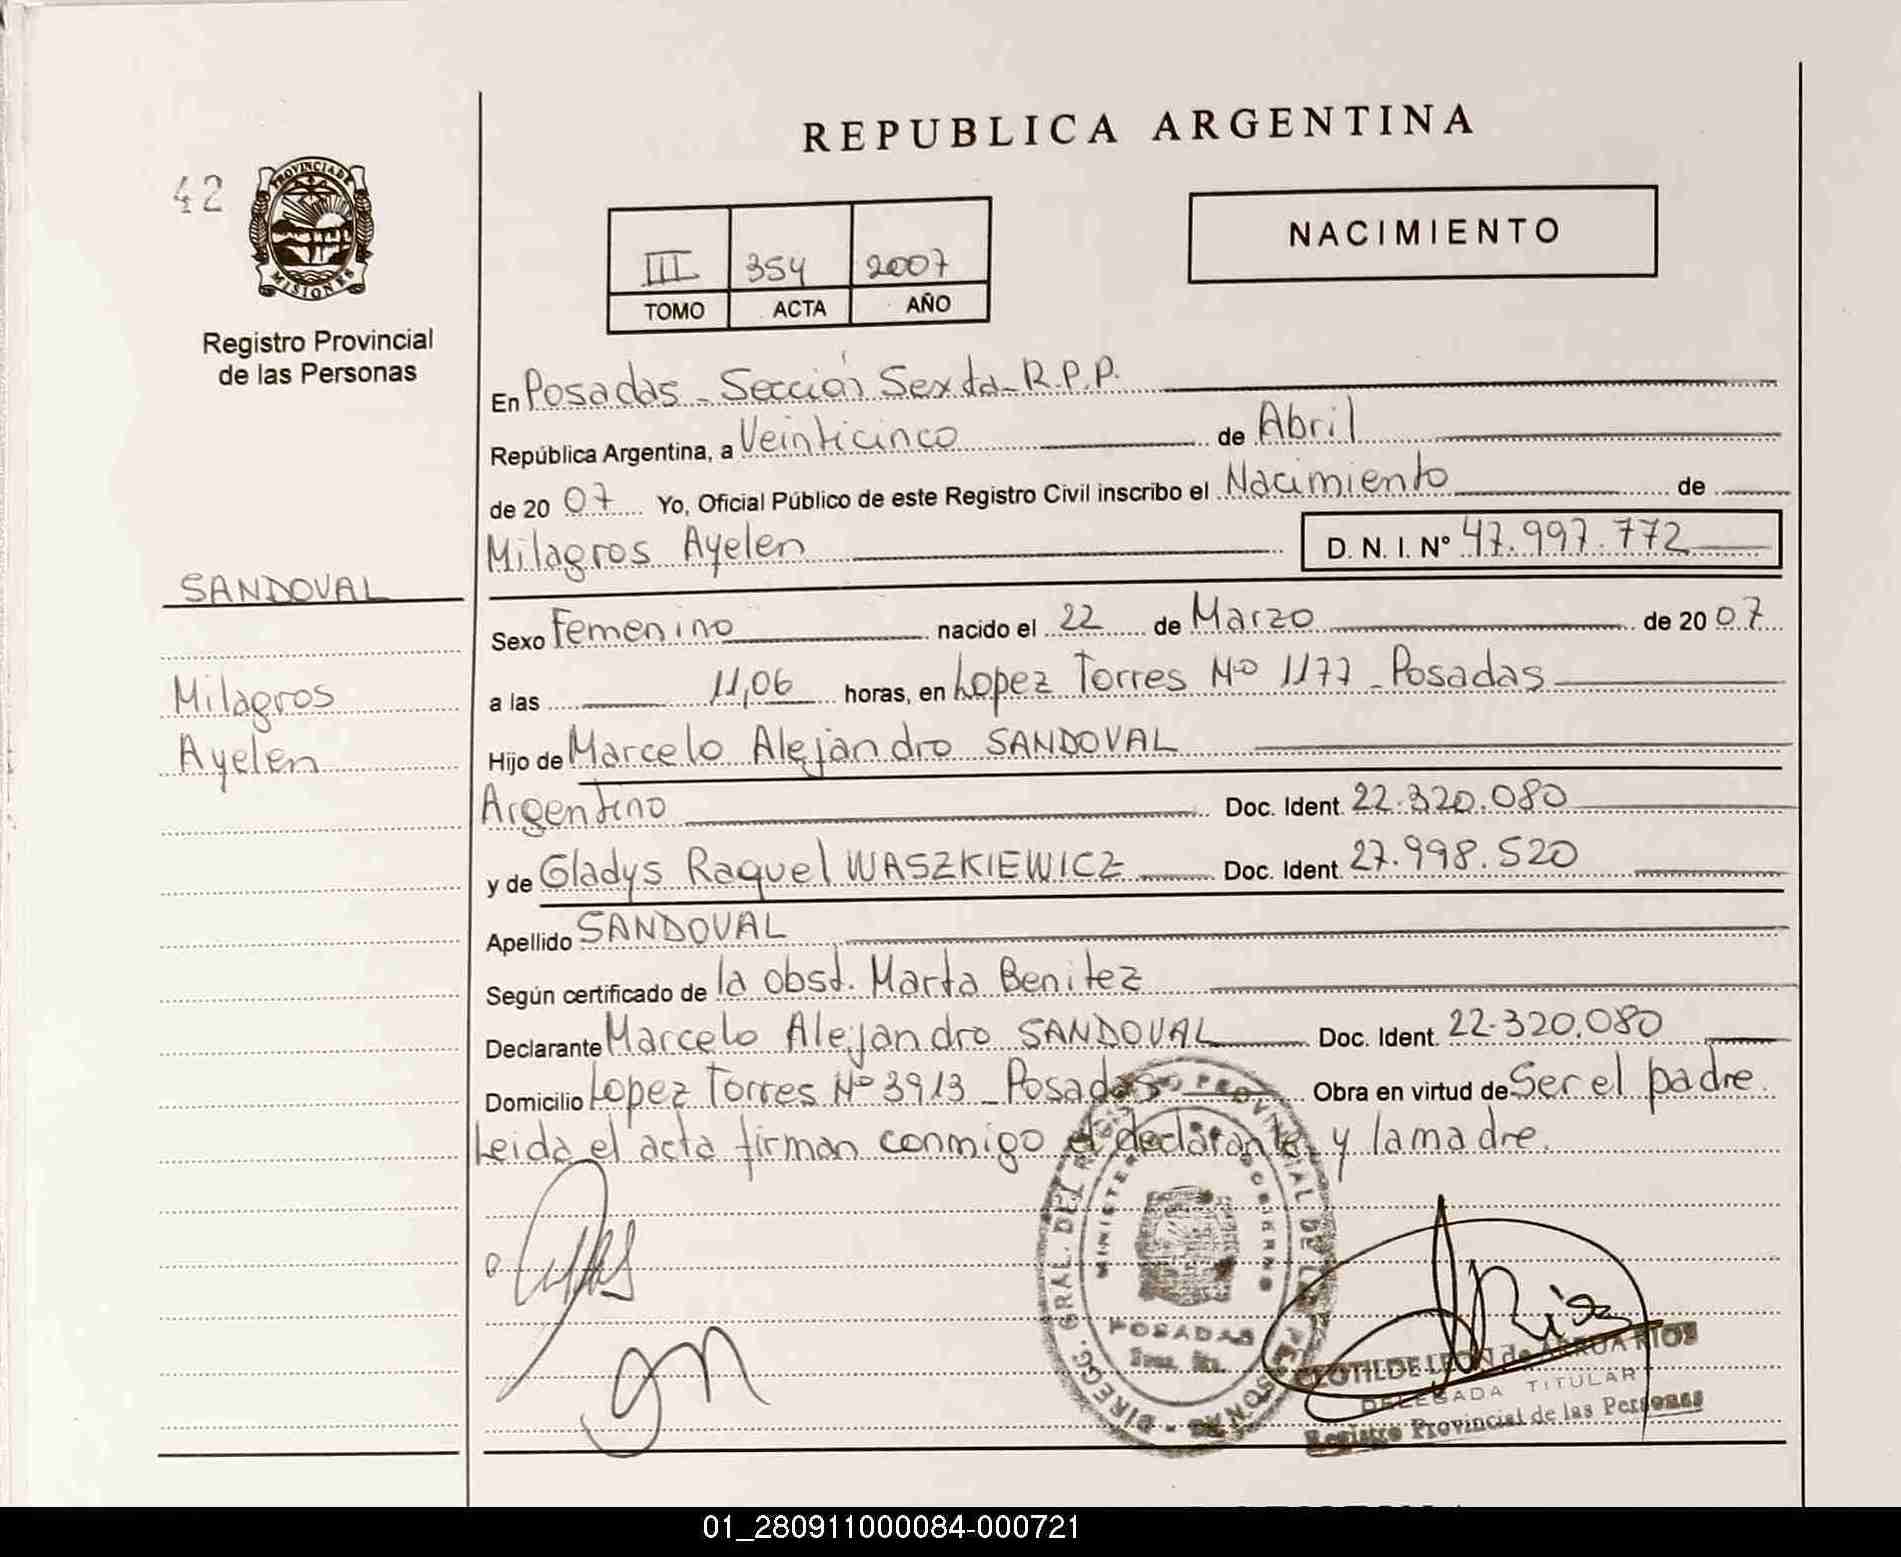 REPUBLICA ARGENTINA
42
PROVINCIA DE
MISIONES
Registro Provincial
de las Personas
III 354 2007
TOMO ACTA AÑO
NACIMIENTO
En Posadas - Sección Sexta - R.P.P.
República Argentina, a Veinticinco de Abril
de 20 07 Yo, Oficial Público de este Registro Civil inscribo el Nacimiento de
Milagros Ayelen D. N. I. Nº 47.997.772
SANDOVAL
Milagros
Ayelen
Sexo Femenino nacido el 22 de Marzo de 20 07
a las 11,06 horas, en Lopez Torres Nº 1177 - Posadas
Hijo de Marcelo Alejandro SANDOVAL
Argentino Doc. Ident. 22.320.080
y de Gladys Raquel WASZKIEWICZ Doc. Ident. 27.998.520
Apellido SANDOVAL
Según certificado de la obst. Marta Benitez
Declarante Marcelo Alejandro SANDOVAL Doc. Ident. 22.320.080
Domicilio Lopez Torres Nº 3913 - Posadas Obra en virtud de Ser el padre.
Leida el acta firman conmigo el declarante y la madre.
DIRECC. GRAL. DEL REGISTRO PROVINCIAL DE LAS PERSONAS
MINISTERIO DE GOBIERNO
POSADAS
CLOTILDE LEON de ARRUA RIOS
DELEGADA TITULAR
Registro Provincial de las Personas
01_280911000084-000721